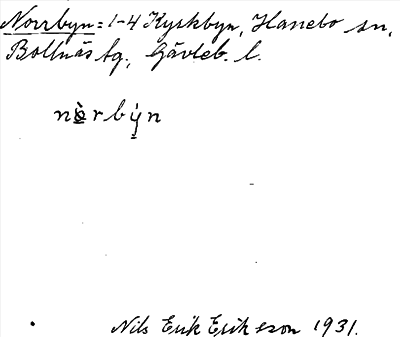 Norrbyn = 1-4 Kyrkbyn, Hanebo sn,
Bollnäs tg., Gävleb. l.
nòrbýn
Nils Erik Erikson 1931.